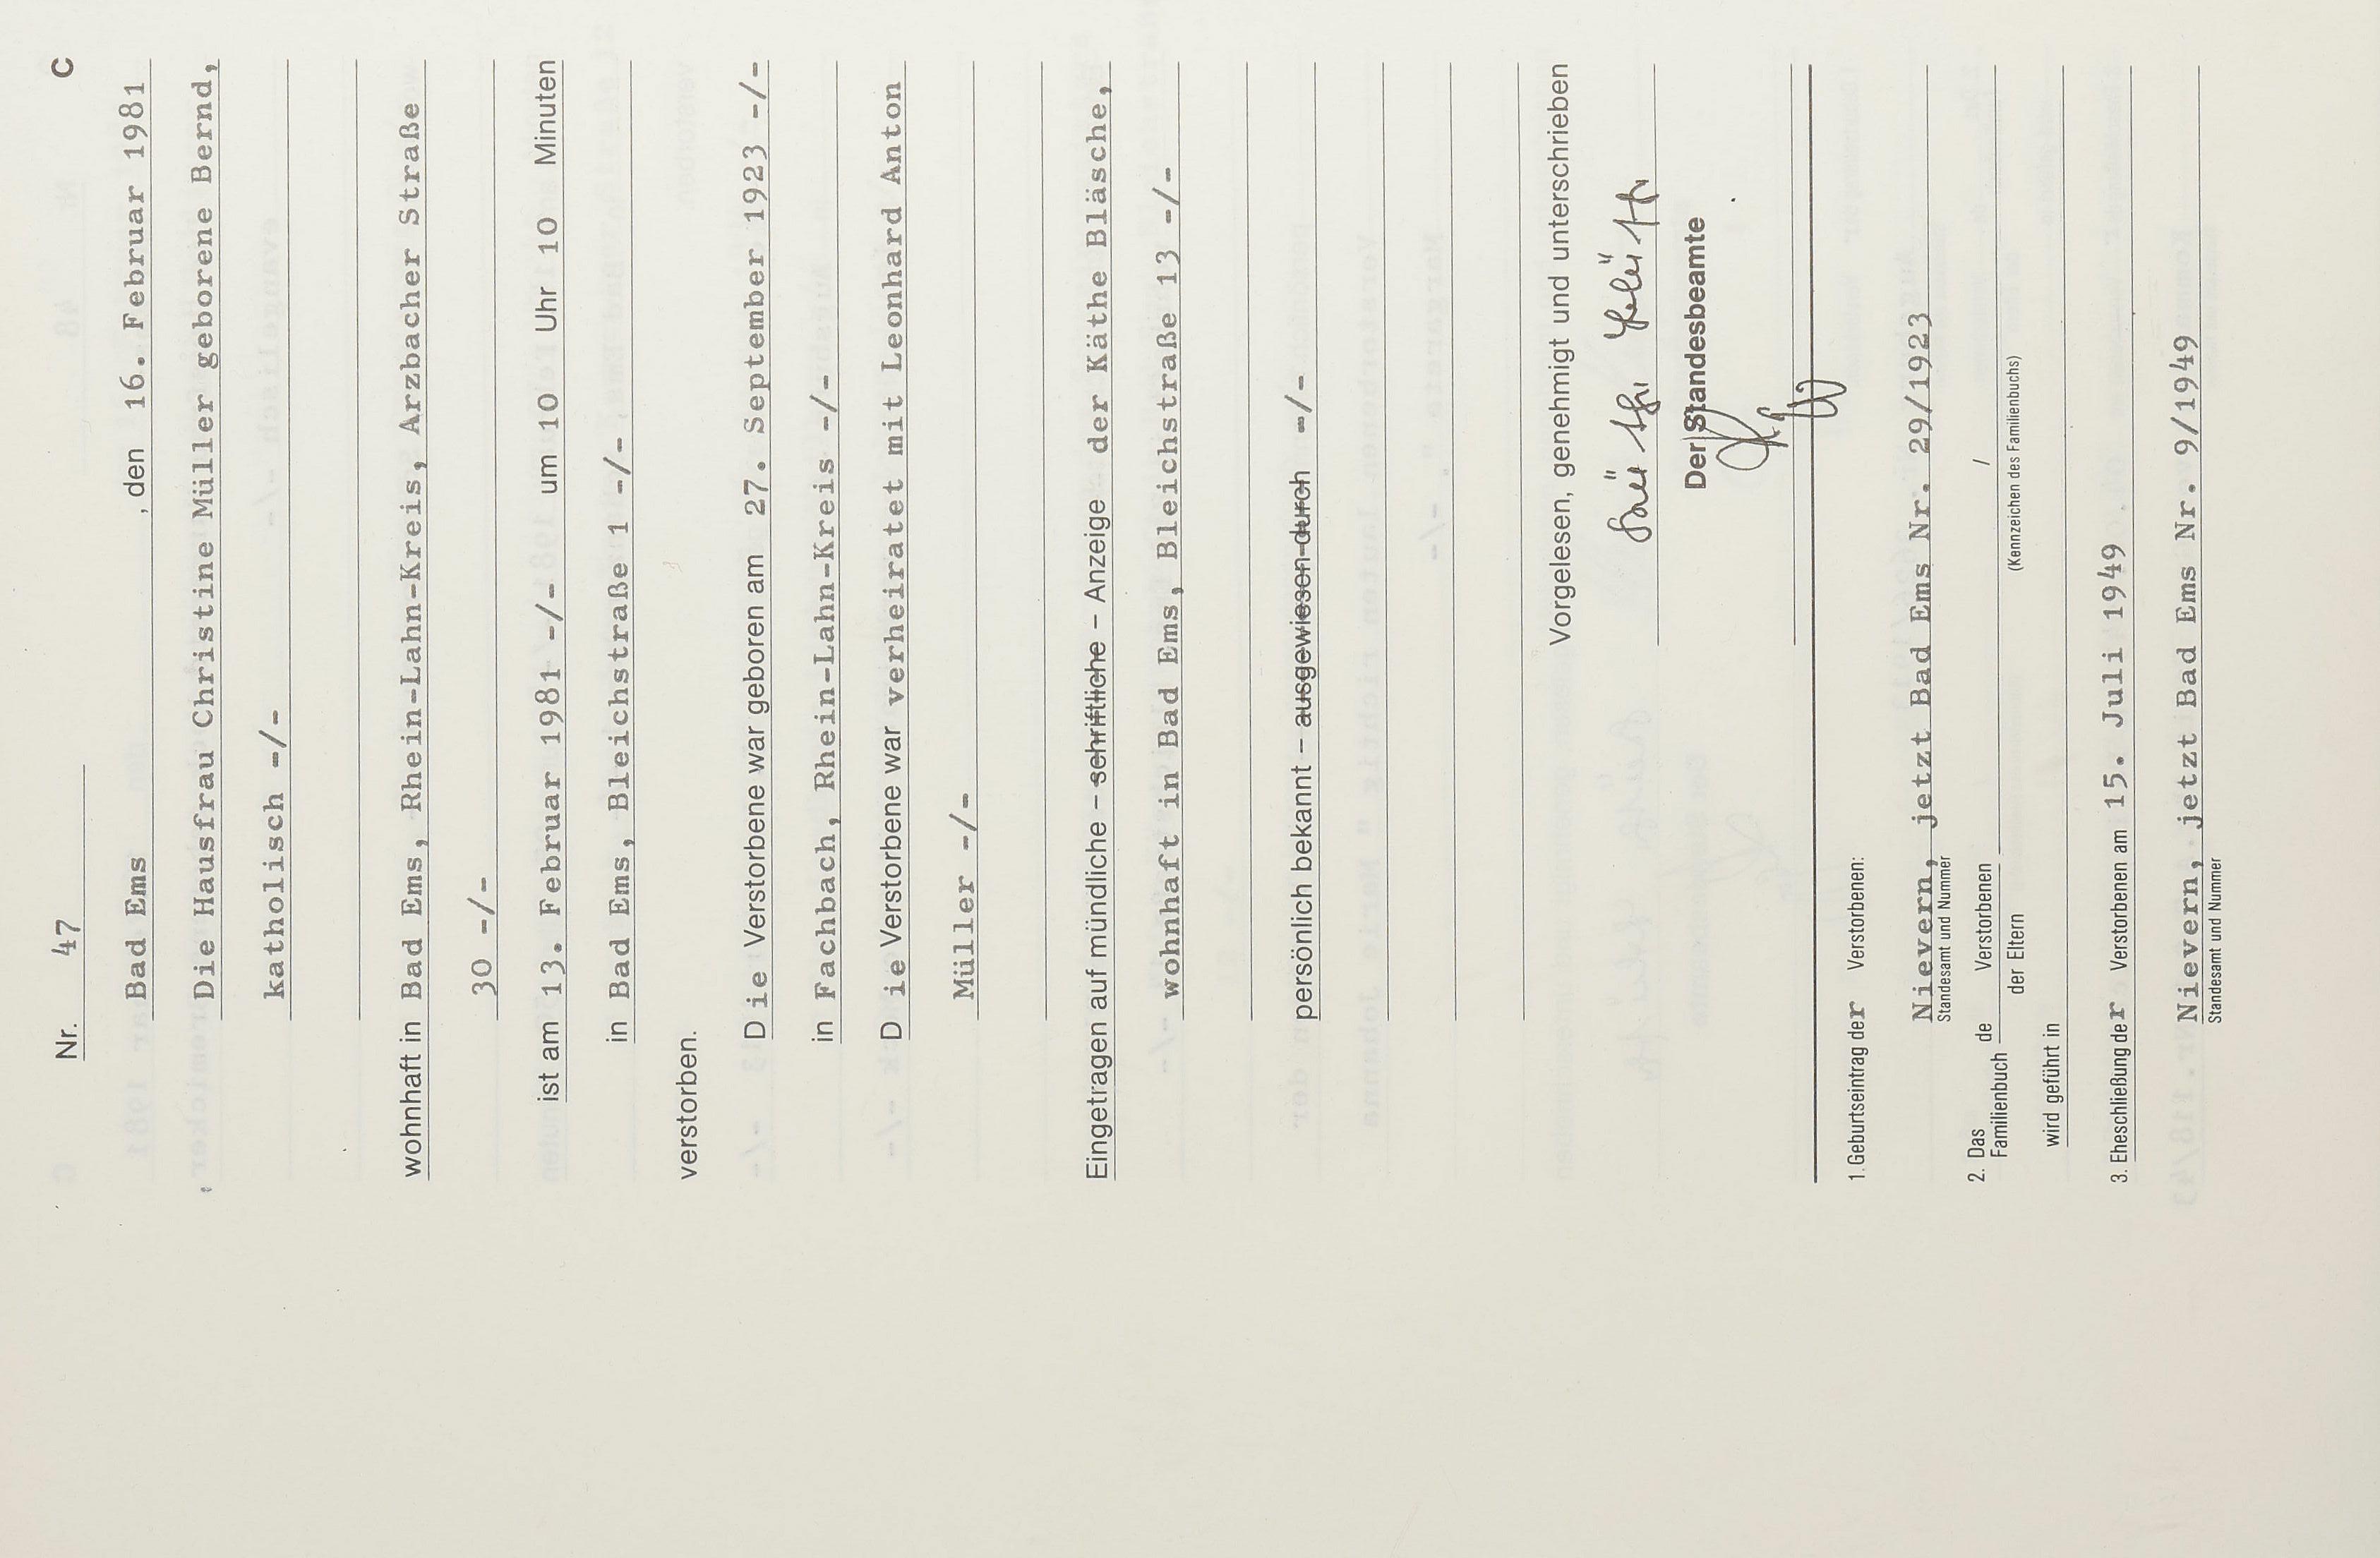 Nr. 47 C
Bad Ems , den 16. Februar 1981
Die Hausfrau Christine Müller geborene Bernd,
katholisch -/-
wohnhaft in Bad Ems, Rhein-Lahn-Kreis, Arzbacher Straße
30 -/-
ist am 13. Februar 1981 -/- um 10 Uhr 10 Minuten
in Bad Ems, Bleichstraße 1 -/-
verstorben.
Die Verstorbene war geboren am 27. September 1923 -/-
in Fachbach, Rhein-Lahn-Kreis -/-
Die Verstorbene war verheiratet mit Leonhard Anton
Müller -/-
Eingetragen auf mündliche – schriftliche – Anzeige der Käthe Bläsche,
wohnhaft in Bad Ems, Bleichstraße 13 -/-
persönlich bekannt – ausgewiesen durch -/-
Vorgelesen, genehmigt und unterschrieben
Der Standesbeamte
1. Geburtseintrag der Verstorbenen:
Nievern, jetzt Bad Ems Nr. 29/1923
Standesamt und Nummer
2. Das Familienbuch de Verstorbenen /
der Eltern (Kennzeichen des Familienbuchs)
wird geführt in
3. Eheschließung der Verstorbenen am 15. Juli 1949
Nievern, jetzt Bad Ems Nr. 9/1949
Standesamt und Nummer